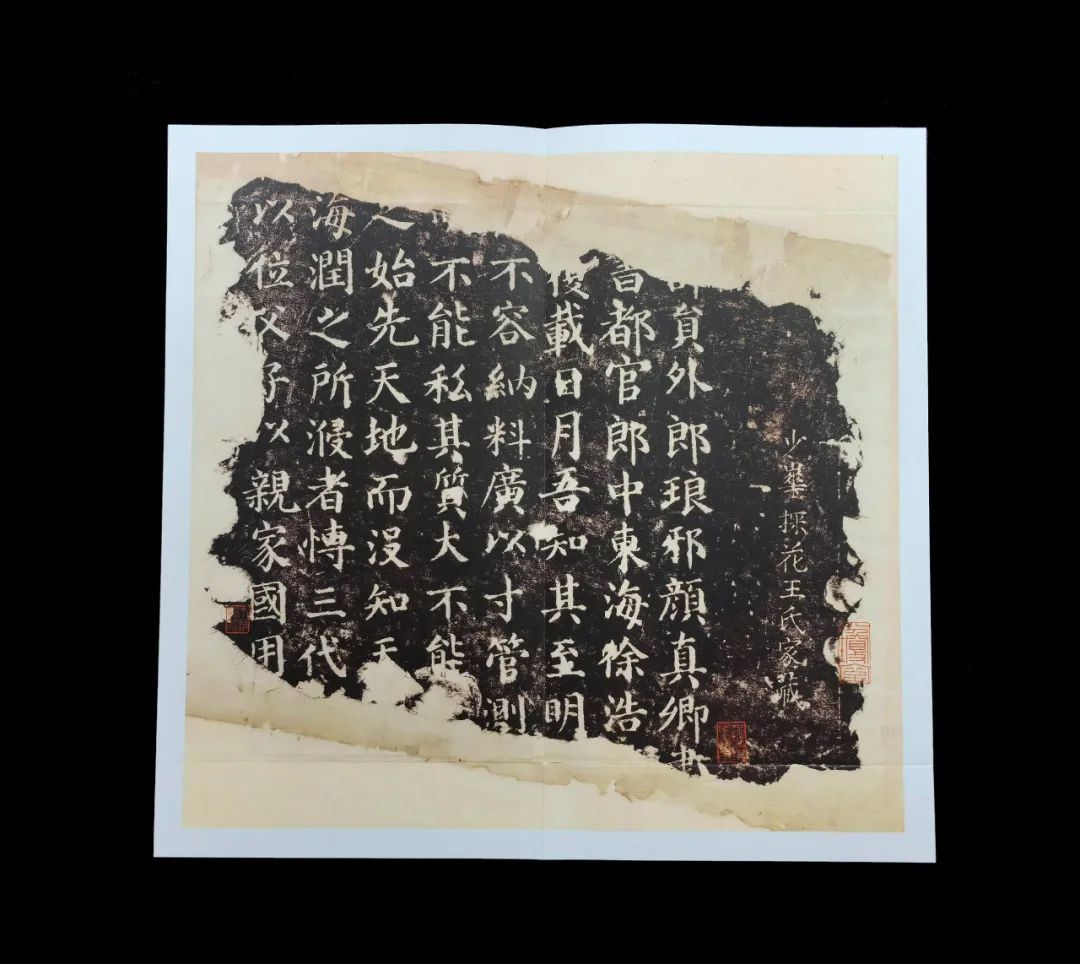 少探花王氏家藏
貟外郎琅邪顏真卿
都官郎中東海徐浩
載日月吾知其至明
不容納料廣以寸管測
不能私其質大不能
始先天地而没知天
海潤之所浸者愽三代
以位父子以親家國用